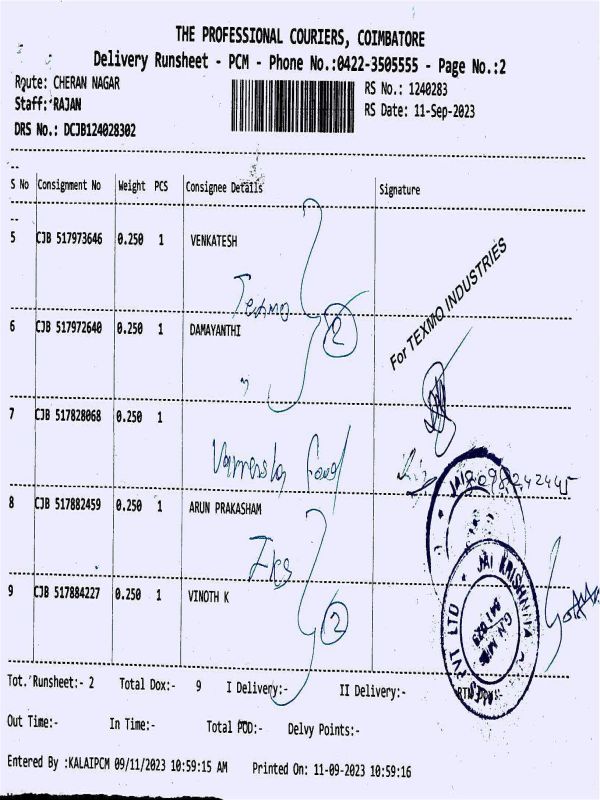 THE PROFESSIONAL COURIERS, COIMBATORE
Delivery Runsheet - PCM - Phone No.:0422-3505555 - Page No.:2
Route: CHERAN NAGAR
RS No.: 1240283
Staff: RAJAN
RS Date: 11-Sep-2023
DRS No.: DCJB124028302
S No Consignment No Weight PCS Consignee Details Signature
5 CJB 517973646 0.250 1 VENKATESH
Texmo
For TEXMO INDUSTRIES
2
6 CJB 517972640 0.250 1 DAMAYANTHI
7 CJB 517828068 0.250 1
8098242445
8 CJB 517882459 0.250 1 ARUN PRAKASHAM
9 CJB 517884227 0.250 1 VINOTH K
2
JAI KRISHNNA
PVT LTD
G.N. Mills
Tot. Runsheet:- 2 Total Dox:- 9 I Delivery:- II Delivery:-
Out Time:- In Time:- Total POD:- Delvy Points:-
Entered By :KALAIPCM 09/11/2023 10:59:15 AM Printed On: 11-09-2023 10:59:16